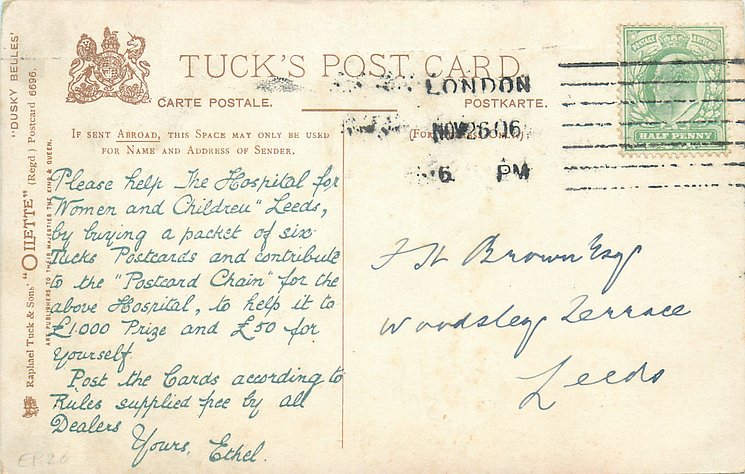 TUCK'S POST CARD
CARTE POSTALE. POSTKARTE.
IF SENT ABROAD, THIS SPACE MAY ONLY BE USED
FOR NAME AND ADDRESS OF SENDER.
LONDON
NOV 26 06
6 PM
HALF PENNY
"DUSKY BELLES"
Raphael Tuck & Sons' "OILETTE" (Regd) Postcard 6696.
ART PUBLISHERS TO THEIR MAJESTIES THE KING & QUEEN.
Please help The Hospital for
Women and Children" Leeds,
by buying a packet of six
Tucks Postcards and contribute
to the "Postcard Chain" for the
above Hospital, to help it to
£1000 Prize and £50 for
yourself.
Post the Cards according to
Rules supplied free by all
Dealers
Yours, Ethel.
Brown Esq
Woodsley Terrace
Leeds
EP20